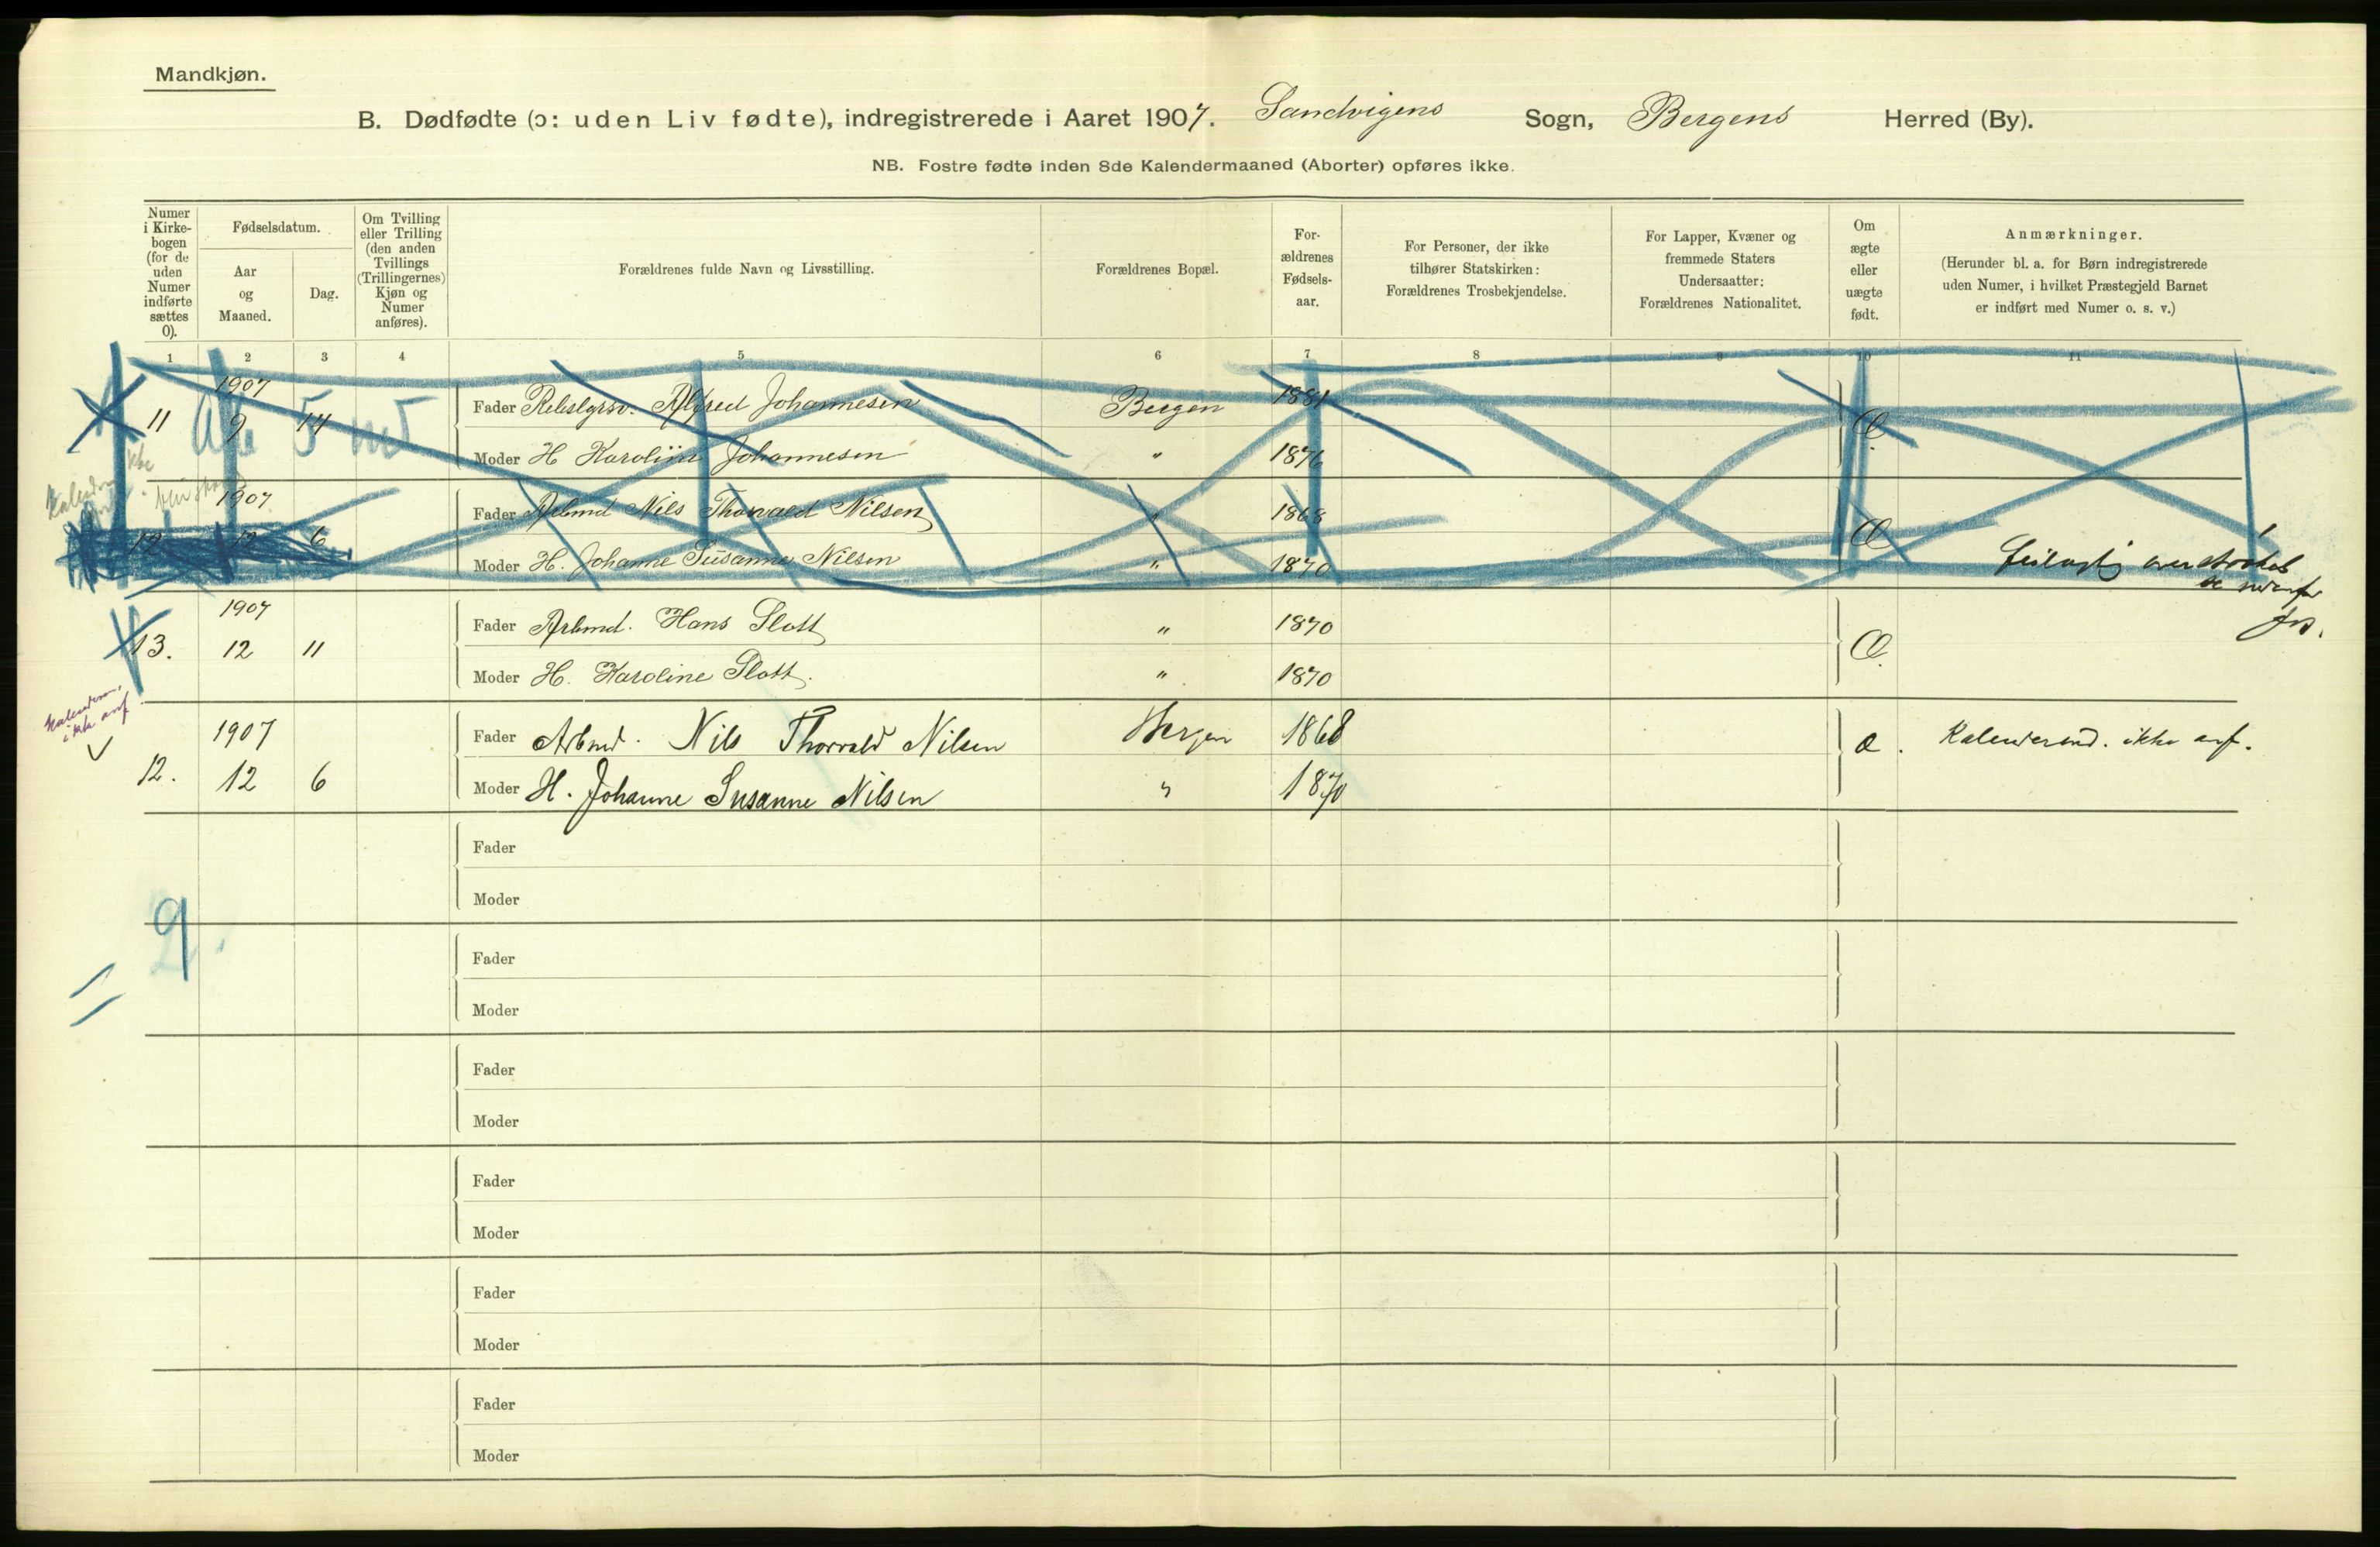 Mandkjøn.
B. Dødfødte (ɔ: uden Liv fødte), indregistrerede i Aaret 1907. Sandvigens Sogn, Bergens Herred (By).
NB. Fostre fødte inden 8de Kalendermaaned (Aborter) opføres ikke.
Numer i Kirke-bogen (for de uden Numer indførte sættes 0).
Fødselsdatum.
Aar og Maaned.
Dag.
Om Tvilling eller Trilling (den anden Tvillings (Trillingernes) Kjøn og Numer anføres).
Forældrenes fulde Navn og Livsstilling.
Forældrenes Bopæl.
For-ældrenes Fødsels-aar.
For Personer, der ikke tilhører Statskirken: Forældrenes Trosbekjendelse.
For Lapper, Kvæner og fremmede Staters Undersaatter: Forældrenes Nationalitet.
Om ægte eller uægte født.
Anmærkninger.
(Herunder bl. a. for Børn indregistrerede uden Numer, i hvilket Præstegjeld Barnet er indført med Numer o. s. v.)
1 2 3 4 5 6 7 8 9 10 11
1907
11 9 14 Fader Alfred Johannesen Bergen 1881 Æ
Moder H Karoline Johannesen " 1876
1907
12 12 6 Fader Arbmd Nils Thorvald Nilsen " 1868 Æ
Moder H. Johanne Susanne Nilsen " 1870
feilagtig overstrøket
se nedenfor
1907
13. 12 11 Fader Arbmd. Hans Slott " 1870 Æ.
Moder H. Karoline Slott. " 1870
Kalenderm. ikke anf.
1907
12. 12 6 Fader Arbmd. Nils Thorvald Nilsen Bergen 1868 æ. Kalendermd. ikke anf.
Moder H. Johanne Susanne Nilsen " 1870
Fader
Moder
9
Fader
Moder
Fader
Moder
Fader
Moder
Fader
Moder
Fader
Moder